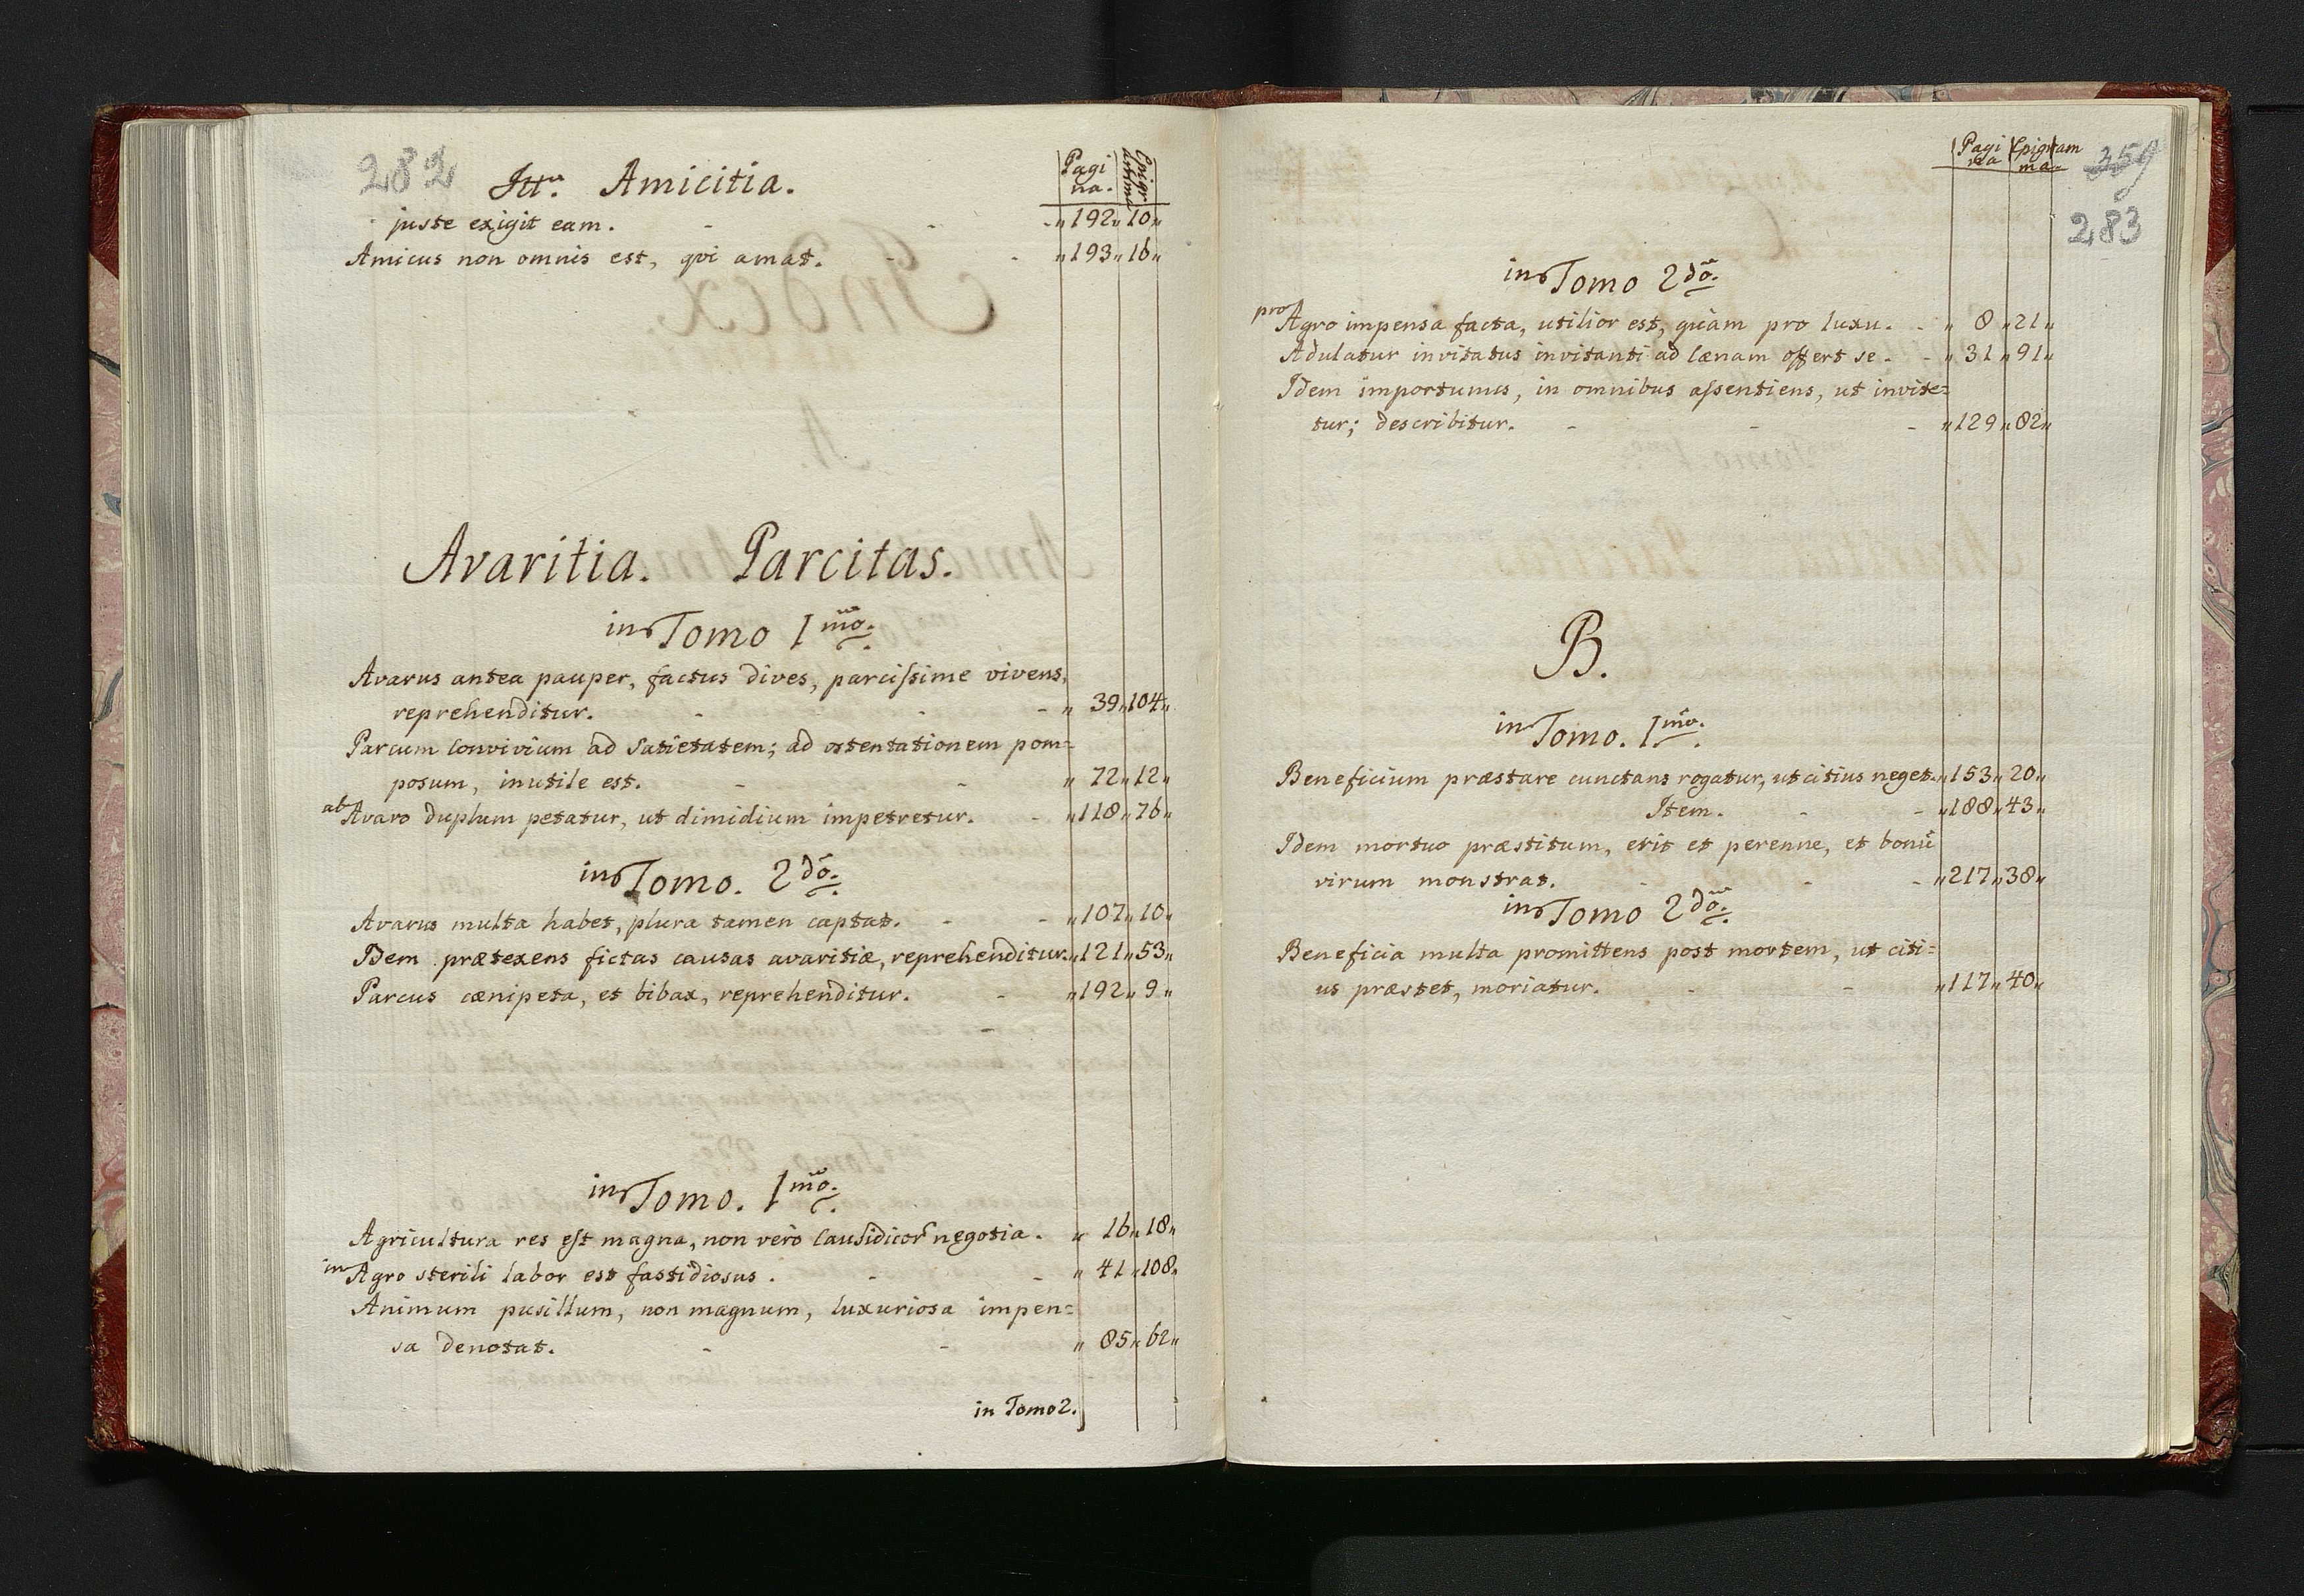 282
Ittm. Amicitia.
Pagi
na.
Epigr
amma
juste exigit eam. - - - „ 192 „ 10 „
Amicus non omnis est, qvi amat. - - „ 193 „ 16 „
Avaritia. Parcitas.
in Tomo 1mo.
Avarus antea pauper, factus dives, parcissime vivens,
reprehenditur. - - - „ 39 „ 104 „
Parcum convivium ad satietatem; ad ostentationem pom=
posum, inutile est. - - „ 72 „ 12 „
ab Avaro duplum petatur, ut dimidium impetretur. - „ 118 „ 76 „
in Tomo. 2do.
Avarus multa habet, plura tamen captat. - - „ 107 „ 10 „
Idem prætexens fictas causas avaritiæ, reprehenditur. „ 121 „ 53 „
Parcus cænipeta, et bibax, reprehenditur. - „ 192 „ 9 „
in Tomo. 1mo.
Agricultura res est magna, non verò causidicor negotia. „ 16 „ 18 „
in Agro sterili labor est fastidiosus. - - „ 41 „ 108 „
Animum pusillum, non magnum, luxuriosa impen=
sa denotat. - - „ 85 „ 62 „
in Tomo 2.
Pagi
na
Epigram
ma.
359
283
in Tomo 2do.
pro Agro impensa facta, utilior est, quàm pro luxu. - „ 8 „ 21 „
Adulatur invitatus invitanti ad cænam offert se. - „ 31 „ 91 „
Idem importunus, in omnibus assentiens, ut invite=
tur; describitur. - - - „ 129 „ 82 „
B.
in Tomo. 1mo.
Beneficium præstare cunctans rogatur, ut citius neget. „ 153 „ 20 „
Item. - - „ 188 „ 43 „
Idem mortuo præstitum, erit et perenne, et bonū
virum monstrat. - - - „ 217 „ 38 „
in Tomo 2do.
Beneficia multa promittens post mortem, ut citi=
us præstet, moriatur. - - „ 117 „ 40 „